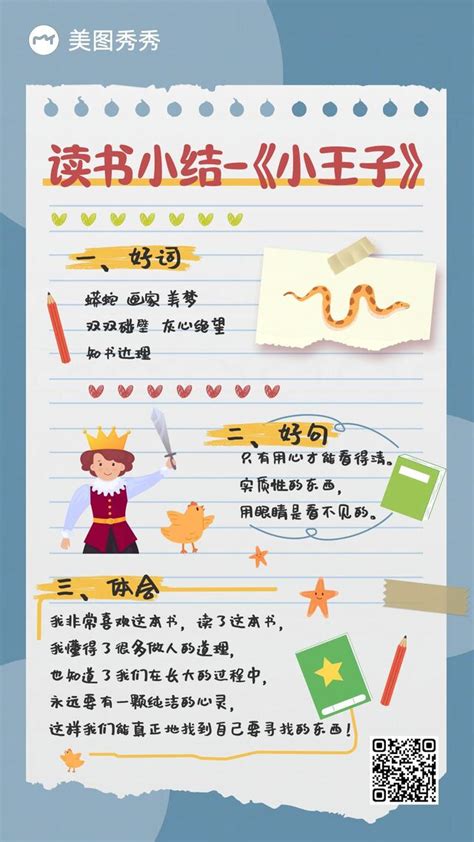 美图秀秀
读书小结-《小王子》
一、好词
蟒蛇 画家 美梦
双双碰壁 灰心绝望
知书达理
二、好句
只有用心才能看得清。
实质性的东西，
用眼睛是看不见的。
三、体会
我非常喜欢这本书，读了这本书，
我懂得了很多做人的道理，
也知道了我们在长大的过程中，
永远要有一颗纯洁的心灵，
这样我们能真正地找到自己要寻找的东西！